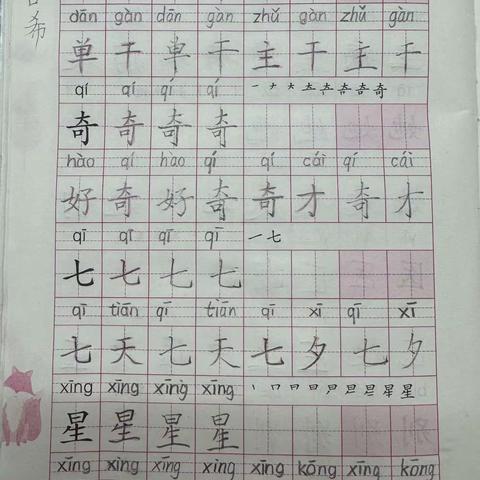 希
dān gàn dān gàn zhǔ gàn zhǔ gàn
单 干 单 干 主 干 主 干
qí qí qí qí
奇 奇 奇 奇
hào qí hào qí qí cái qí cái
好 奇 好 奇 奇 才 奇 才
qī qī qī qī 一 七
七 七 七 七
qī tiān qī tiān qī xī qī xī
七 天 七 天 七 夕 七 夕
xīng xīng xīng xīng
星 星 星 星
xīng xing xīng xing xīng kōng xīng kōng